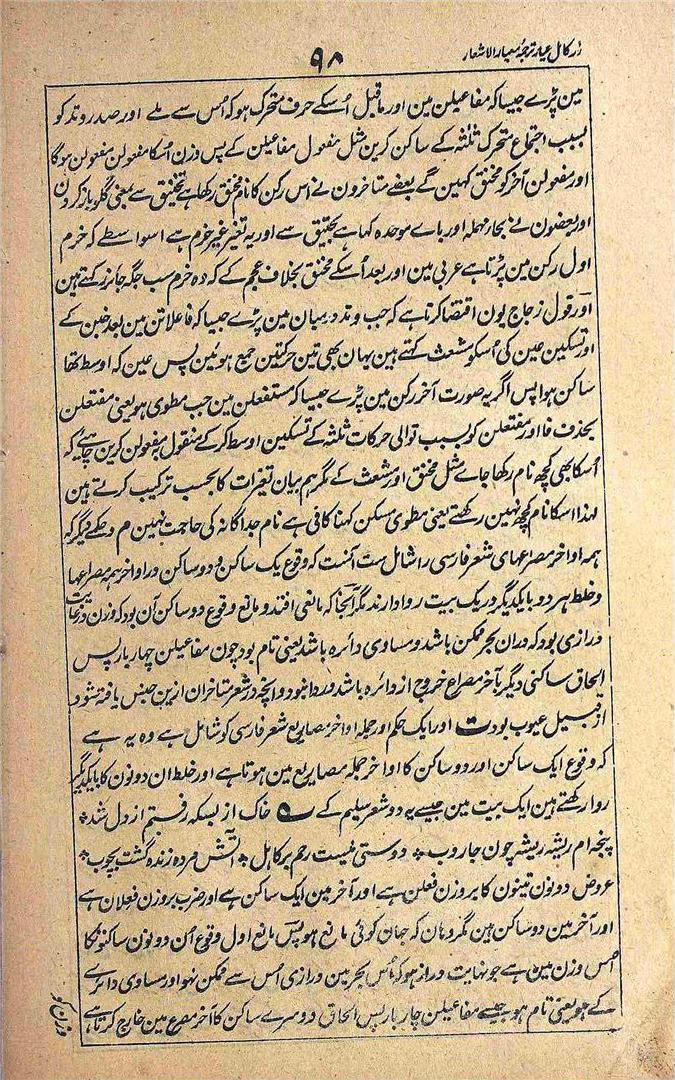 زر کامل عیار ترجمہ معیار الاشعار
۹۸
مین پڑے جیسا کہ مفاعیلن مین اور ماقبل اُسکے حرف متحرک ہو کہ اُس سے ملے اور صدر وتد کو
بسبب اجتماع متحرک ثلثہ کے ساکن کرین مثل مفعول مفاعیلن کے پس وزن اُسکا مفعولن مفعولن ہوگا
اور مفعولن آخر کو مخنق کہین گے بعضے متاخرون نے اس رکن کا نام مخنق رکھا ہے تخنیق سے بمعنی گلو باز کردن
اور بعضون نے بحاء مہملہ اور باے موحدہ کہا ہے تحبیق سے اور یہ تغیر غیر خرم ہے اسواسطے کہ خرم
اول رکن مین پڑتا ہے عربی مین اور بعد اُسکے مخنق بخلاف عجم کے کہ وہ خرم سب جگہ جائز رکھتے ہین
اور قول زجاج یون اقتضا کرتا ہے کہ جب وتد درمیان مین پڑے جیسا کہ فاعلاتن مین بعد خبن کے
اور تسکین عین کی اُسکو مشعث کہتے ہین یہان بھی تین حرکتین جمع ہوئین پس عین کہ اوسط تھا
ساکن ہوا پس اگر یہ صورت آخر رکن مین پڑے جیسا کہ مستفعلن مین جب مطوی ہو یعنی مفتعلن
بحذف فا اور مفتعلن کو بسبب توالی حرکات ثلثہ کے تسکین اوسط کر کے منقول بمفعولن کرین چاہیے کہ
اُسکا بھی کچھ نام رکھا جاے مثل مخنق اور مشعث کے مگر ہم بیان تغیرات کا بحسب ترکیب کرتے ہین
لہذا اسکا نام کچھ نہین رکھتے یعنی مطوی مسکن کہنا کافی ہے نام جداگانہ کی حاجت نہین م و حکمے دیگر کہ
ہمہ اواخر مصراعہای شعر فارسی را شامل ست آنست کہ وقوع یک ساکن و دو ساکن در اواخر ہمہ مصراعہا
و خلط ہر دو بایکدیگر در یک بیت روا دارند مگر آنجا کہ مانعی افتد و مانع وقوع دو ساکن آن بود کہ وزن در غایت
درازی بود کہ دران بحر ممکن باشد و مساوی دائرہ باشد یعنی تام بود چون مفاعیلن چہار بار پس
الحاق ساکنی دیگر بآخر مصراع خروج از دائرہ باشد و روا نبود و انچہ در شعر متاخران ازین جنس یافتہ شود
از قبیل عیوب بود ت اور ایک حکم اور جملہ اواخر مصاریع شعر فارسی کو شامل ہے وہ یہ ہے
کہ وقوع ایک ساکن اور دو ساکن کا اواخر جملہ مصاریع مین ہوتا ہے اور خلط ان دونون کا بایکدیگر
روا رکھتے ہین ایک بیت مین جیسے یہ دو شعر سلیم کے ؎ خاک از بسکہ رفتم از دل شد ٭
پنجہ ام ریشہ ریشہ چون جاروب ٭ دوستی نیست رحم بر کاہل ٭ آتش مردہ زندہ گشت بچوب ٭
عروض دونون بیتون کا بر وزن فعلن ہے اور آخر مین ایک ساکن ہے اور ضرب بر وزن فعلان ہے
اور آخر مین دو ساکن ہین مگر وہان کہ جہان کوئی مانع ہو پس مانع اول وقوع اُن دونون ساکنونکا
اُس وزن مین ہے جو نہایت دراز ہو کہ اُس بحر مین درازی اُس سے ممکن نہو اور مساوی دائرے
کے ہو یعنی تام ہو جیسے مفاعیلن چار بار پس الحاق دوسرے ساکن کا آخر مصرع مین خارج کرتا ہے
وزن کو